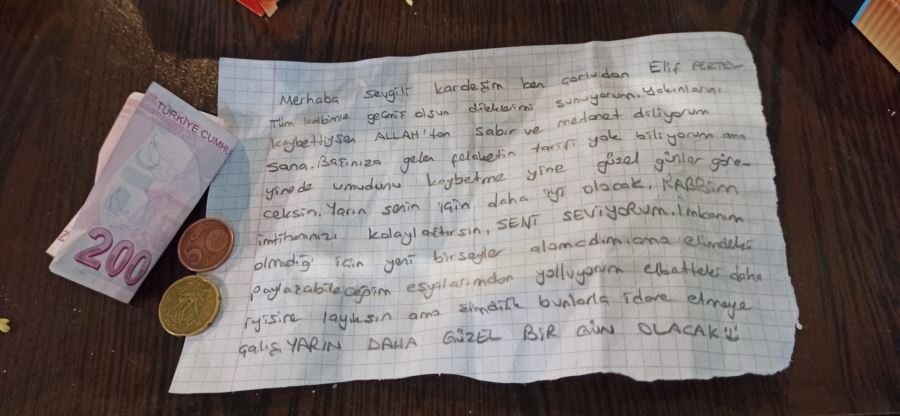 Merhaba sevgili kardeşim ben çorludan Elif PERTEL
Tüm kalbimle geçmiş olsun dileklerimi sunuyorum. Yakınlarını
kaybettiysen ALLAH'tan sabır ve metanet diliyorum
sana. Başınıza gelen felaketin tarifi yok biliyorum ama
yinede umudunu kaybetme yine güzel günler göre-
ceksin. Yarın senin için daha iyi olacak. RABBİM
imtihanınızı kolaylaştırsın, SENİ SEVİYORUM. İmkanım
olmadığı için yeni birşeyler alamadım, ama elimdeki
paylaşabileceğim eşyalarımdan yolluyorum elbetteki daha
iyisine layıksın ama şimdilik bunlarla idare etmeye
çalış, YARIN DAHA GÜZEL BİR GÜN OLACAK
TÜRKİYE CUMHU
200